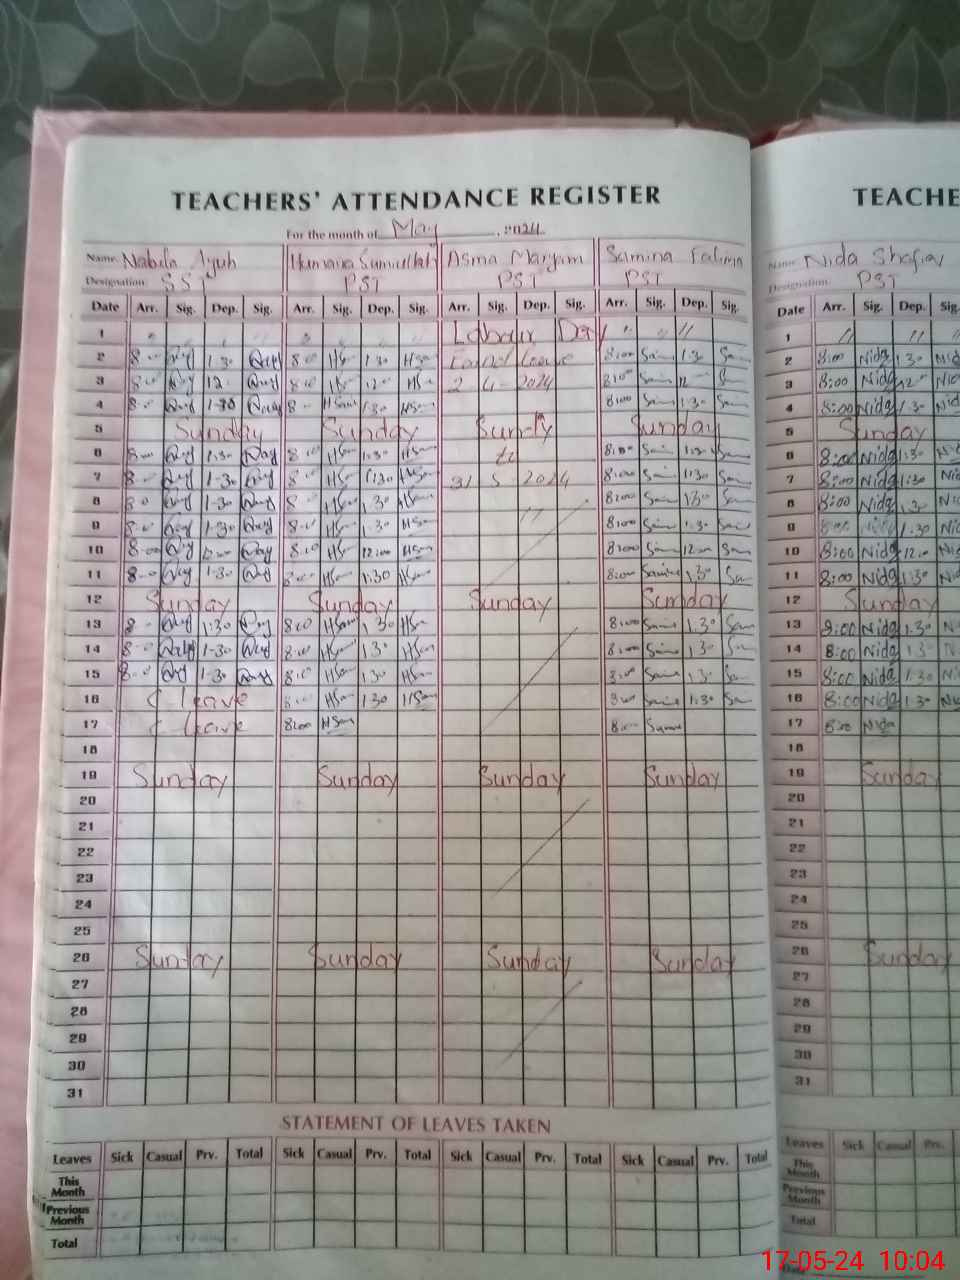 TEACHERS' ATTENDANCE REGISTER
For the month of May, 2024
Name Nabila Ayub Humaira Samiullah Asma Maryam Samina Fatima
Designation SST PST PST PST
Date Arr. Sig. Dep. Sig. Arr. Sig. Dep. Sig. Arr. Sig. Dep. Sig. Arr. Sig. Dep. Sig.
1 " " " " Labour Day " " "
2 8:00 1-30 8:00 HSam 1:30 HSam Leave 8:00 Sam 1:30 Sam
3 8:00 12 8:00 HSam 12:00 HSam 2 4 2024 8:00 Sam 12 Sam
4 8:00 1-30 8:00 HSam 1:30 HSam 8:00 Sam 1:30 Sam
5 Sunday Sunday Sunday Sunday
6 8:00 1:30 8:00 HSam 1:30 HSam to 8:00 Sam 1:30 Sam
7 8:00 1-30 8:00 HSam 1:30 HSam 31 5 2024 8:00 Sam 1:30 Sam
8 8:00 1-30 8:00 HSam 1:30 HSam 8:00 Sam 1:30 Sam
9 8:00 1-30 8:00 HSam 1:30 HSam " 8:00 Sam 1:30 Sam
10 8:00 8:00 HSam 12:00 HSam 8:00 Sam 12:00 Sam
11 8:00 1-30 8:00 HSam 1:30 HSam 8:00 Sam 1:30 Sam
12 Sunday Sunday Sunday Sunday
13 8:00 1:30 8:00 HSam 1:30 HSam 8:00 Sam 1:30 Sam
14 8:00 1-30 8:00 HSam 1:30 HSam 8:00 Sam 1:30 Sam
15 8:00 1-30 8:00 HSam 1:30 HSam 8:00 Sam 1:30 Sam
16 C leave 8:00 HSam 1:30 HSam 8:00 Sam 1:30 Sam
17 C leave 8:00 HSam 8:00 Sam
18
19 Sunday Sunday Sunday Sunday
20
21
22
23
24
25
26 Sunday Sunday Sunday Sunday
27
28
29
30
31
STATEMENT OF LEAVES TAKEN
Leaves Sick Casual Prv. Total Sick Casual Prv. Total Sick Casual Prv. Total Sick Casual Prv. Total
This Month
Previous Month
Total
TEACHE
Name Nida Shafiq
Designation PST
Date Arr. Sig. Dep. Sig.
1 " " "
2 8:00 Nida 1:30 Nid
3 8:00 Nida 12:00 Nid
4 8:00 Nida 1:30 Nid
5 Sunday
6 8:00 Nida 1:30 N
7 8:00 Nida 1:30 Nid
8 8:00 Nida 1:30 N
9 8:00 Nida 1:30 Nid
10 8:00 Nida 12:00 Ni
11 8:00 Nida 1:30 Nid
12 Sunday
13 8:00 Nida 1:30 N
14 8:00 Nida 1:3 N
15 8:00 Nida 1:30 Nid
16 8:00 Nida 1:30 Ni
17 8:00 Nida
18
19 Sunday
20
21
22
23
24
25
26 Sunday
27
28
29
30
31
Leaves Sick Casual Prv.
This Month
Previous Month
Total
Date
17-05-24 10:04